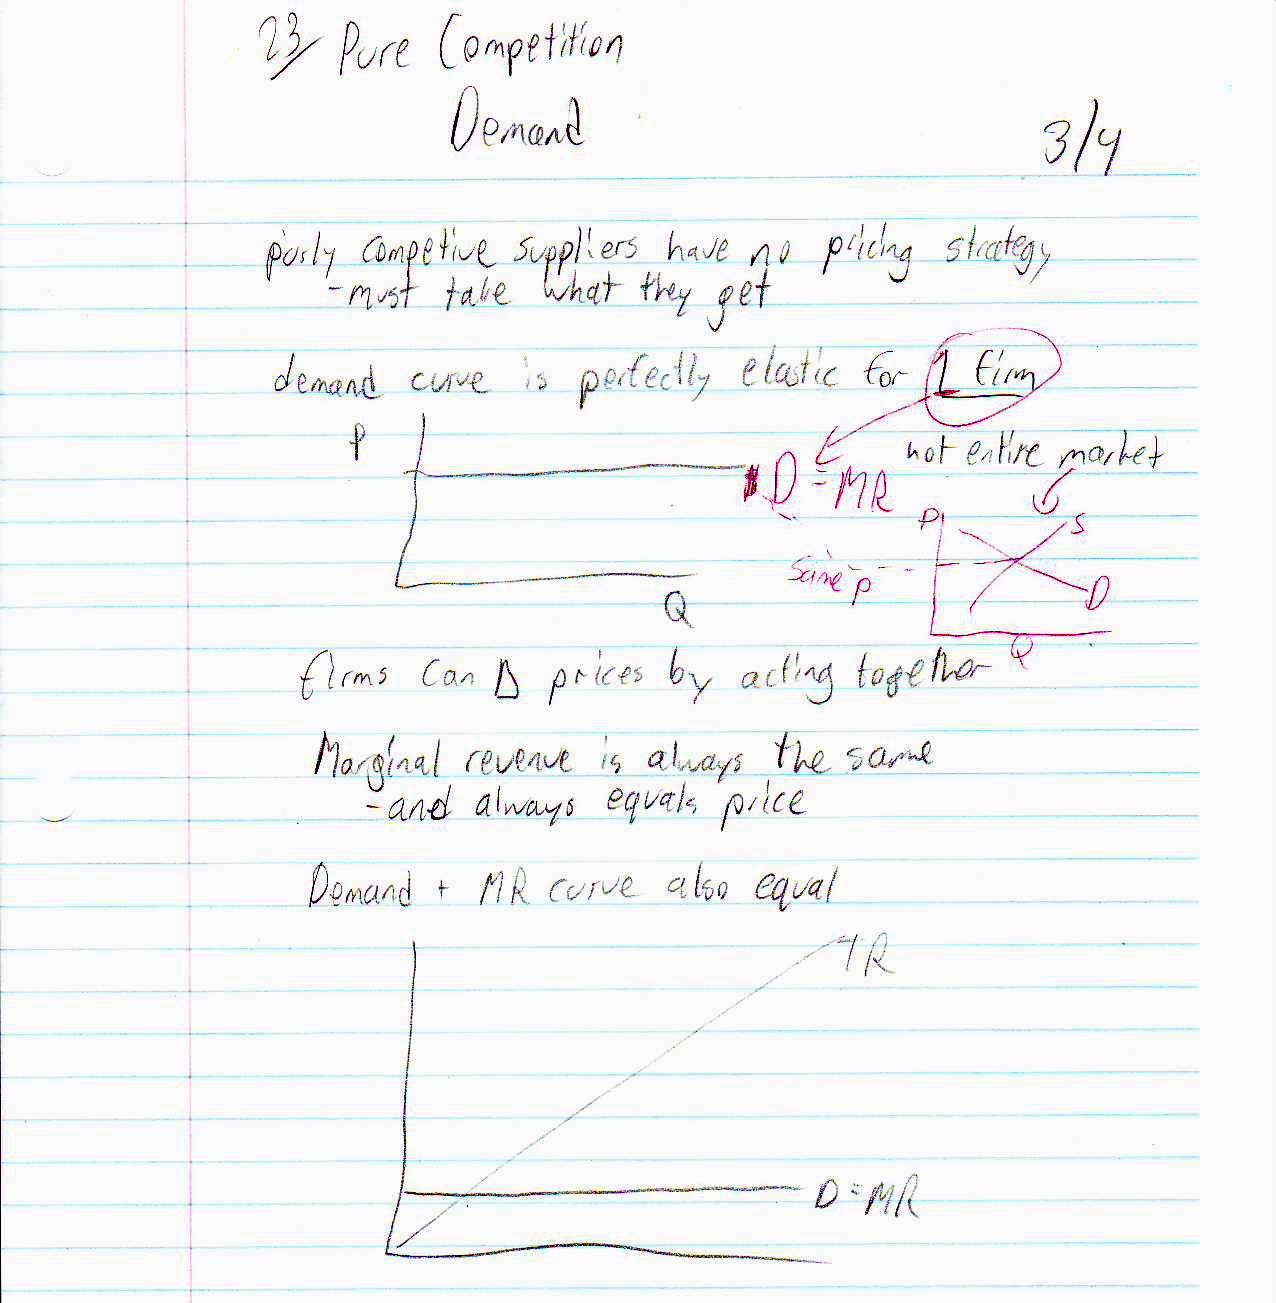 23/ Pure Competition
Demand
3/4
purly competive suppliers have no pricing strategy
-must take what they get
demand curve is perfectly elastic for 1 firm
P
not entire market
D = MR
P
S
same p
D
Q
Q
firms can Δ prices by acting together
Marginal revenue is always the same
-and always equals price
Demand + MR curve also equal
TR
D = MR